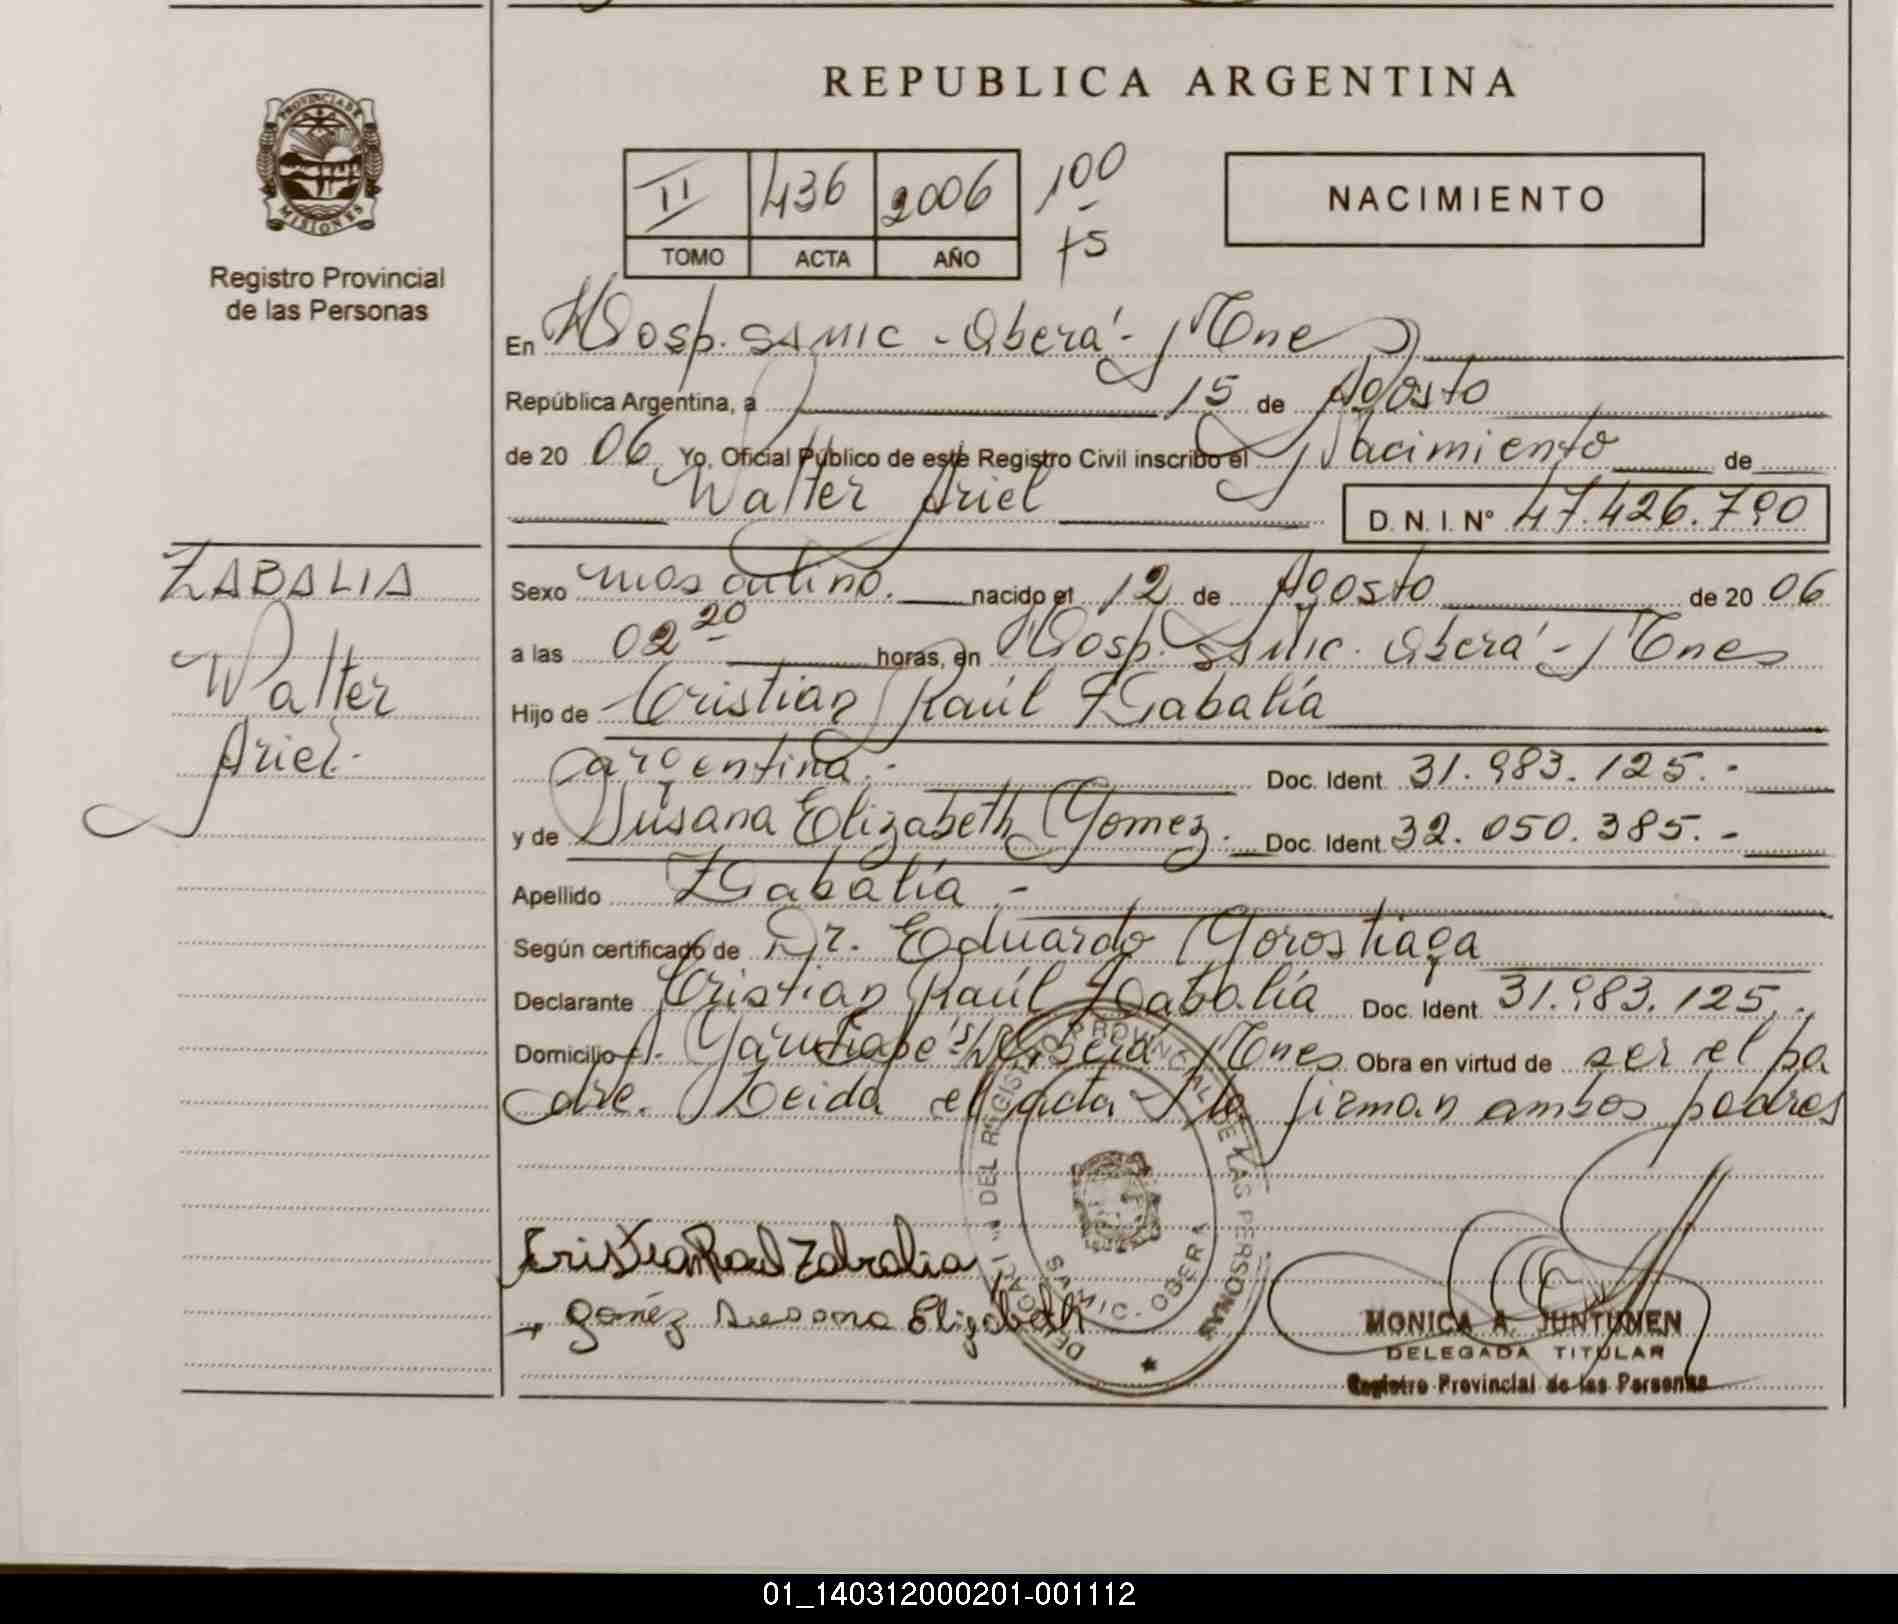 REPUBLICA ARGENTINA
PROVINCIA DE
MISIONES
Registro Provincial
de las Personas
II 436 2006 100
TOMO ACTA AÑO 75
NACIMIENTO
En Hosp. SAMIC - Oberá - Mnes
República Argentina, a 15 de Agosto
de 20 06 Yo, Oficial Público de este Registro Civil inscribo el Nacimiento de
Walter Ariel D. N. I. N° 47.426.790
ZABALIA
Walter
Ariel.-
Sexo masculino. nacido el 12 de Agosto de 20 06
a las 02 20 horas, en Hosp. SAMIC. Oberá - Mnes
Hijo de Cristian Raúl Zabalía
argentina.- Doc. Ident. 31.983.125.-
y de Susana Elizabeth Gomez. Doc. Ident. 32.050.385.-
Apellido Zabalía -
Según certificado de Dr. Eduardo Gorostiaga
Declarante Cristian Raúl Zabalía Doc. Ident. 31.983.125.-
Domicilio A. Garuhapé s/n Mnes Obra en virtud de ser el pa
dre. Leida el acta la firman ambos padres
DEL REGISTRO PROVINCIAL DE LAS PERSONAS
SAMIC - OBERA
Cristian Raul Zabalia
Goméz Susana Elizabeth
MONICA A. JUNTUNEN
DELEGADA TITULAR
Registro Provincial de las Personas
01_140312000201-001112